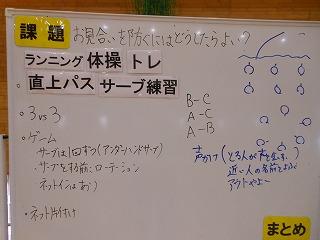 課題
お見合いを防ぐにはどうしたらよい?
ランニング 体操 トレ
直上パス サーブ練習
・3 vs 3
B-C
A-C
A-B
・ゲーム
サーブは1回ずつ(アンダーハンドサーブ)
サーブをする前にローテーション
ネットインはあり
声かけ(とる人が声を出す
近い人の名前をよぶ
アウトやよー
・ネット片付け
まとめ